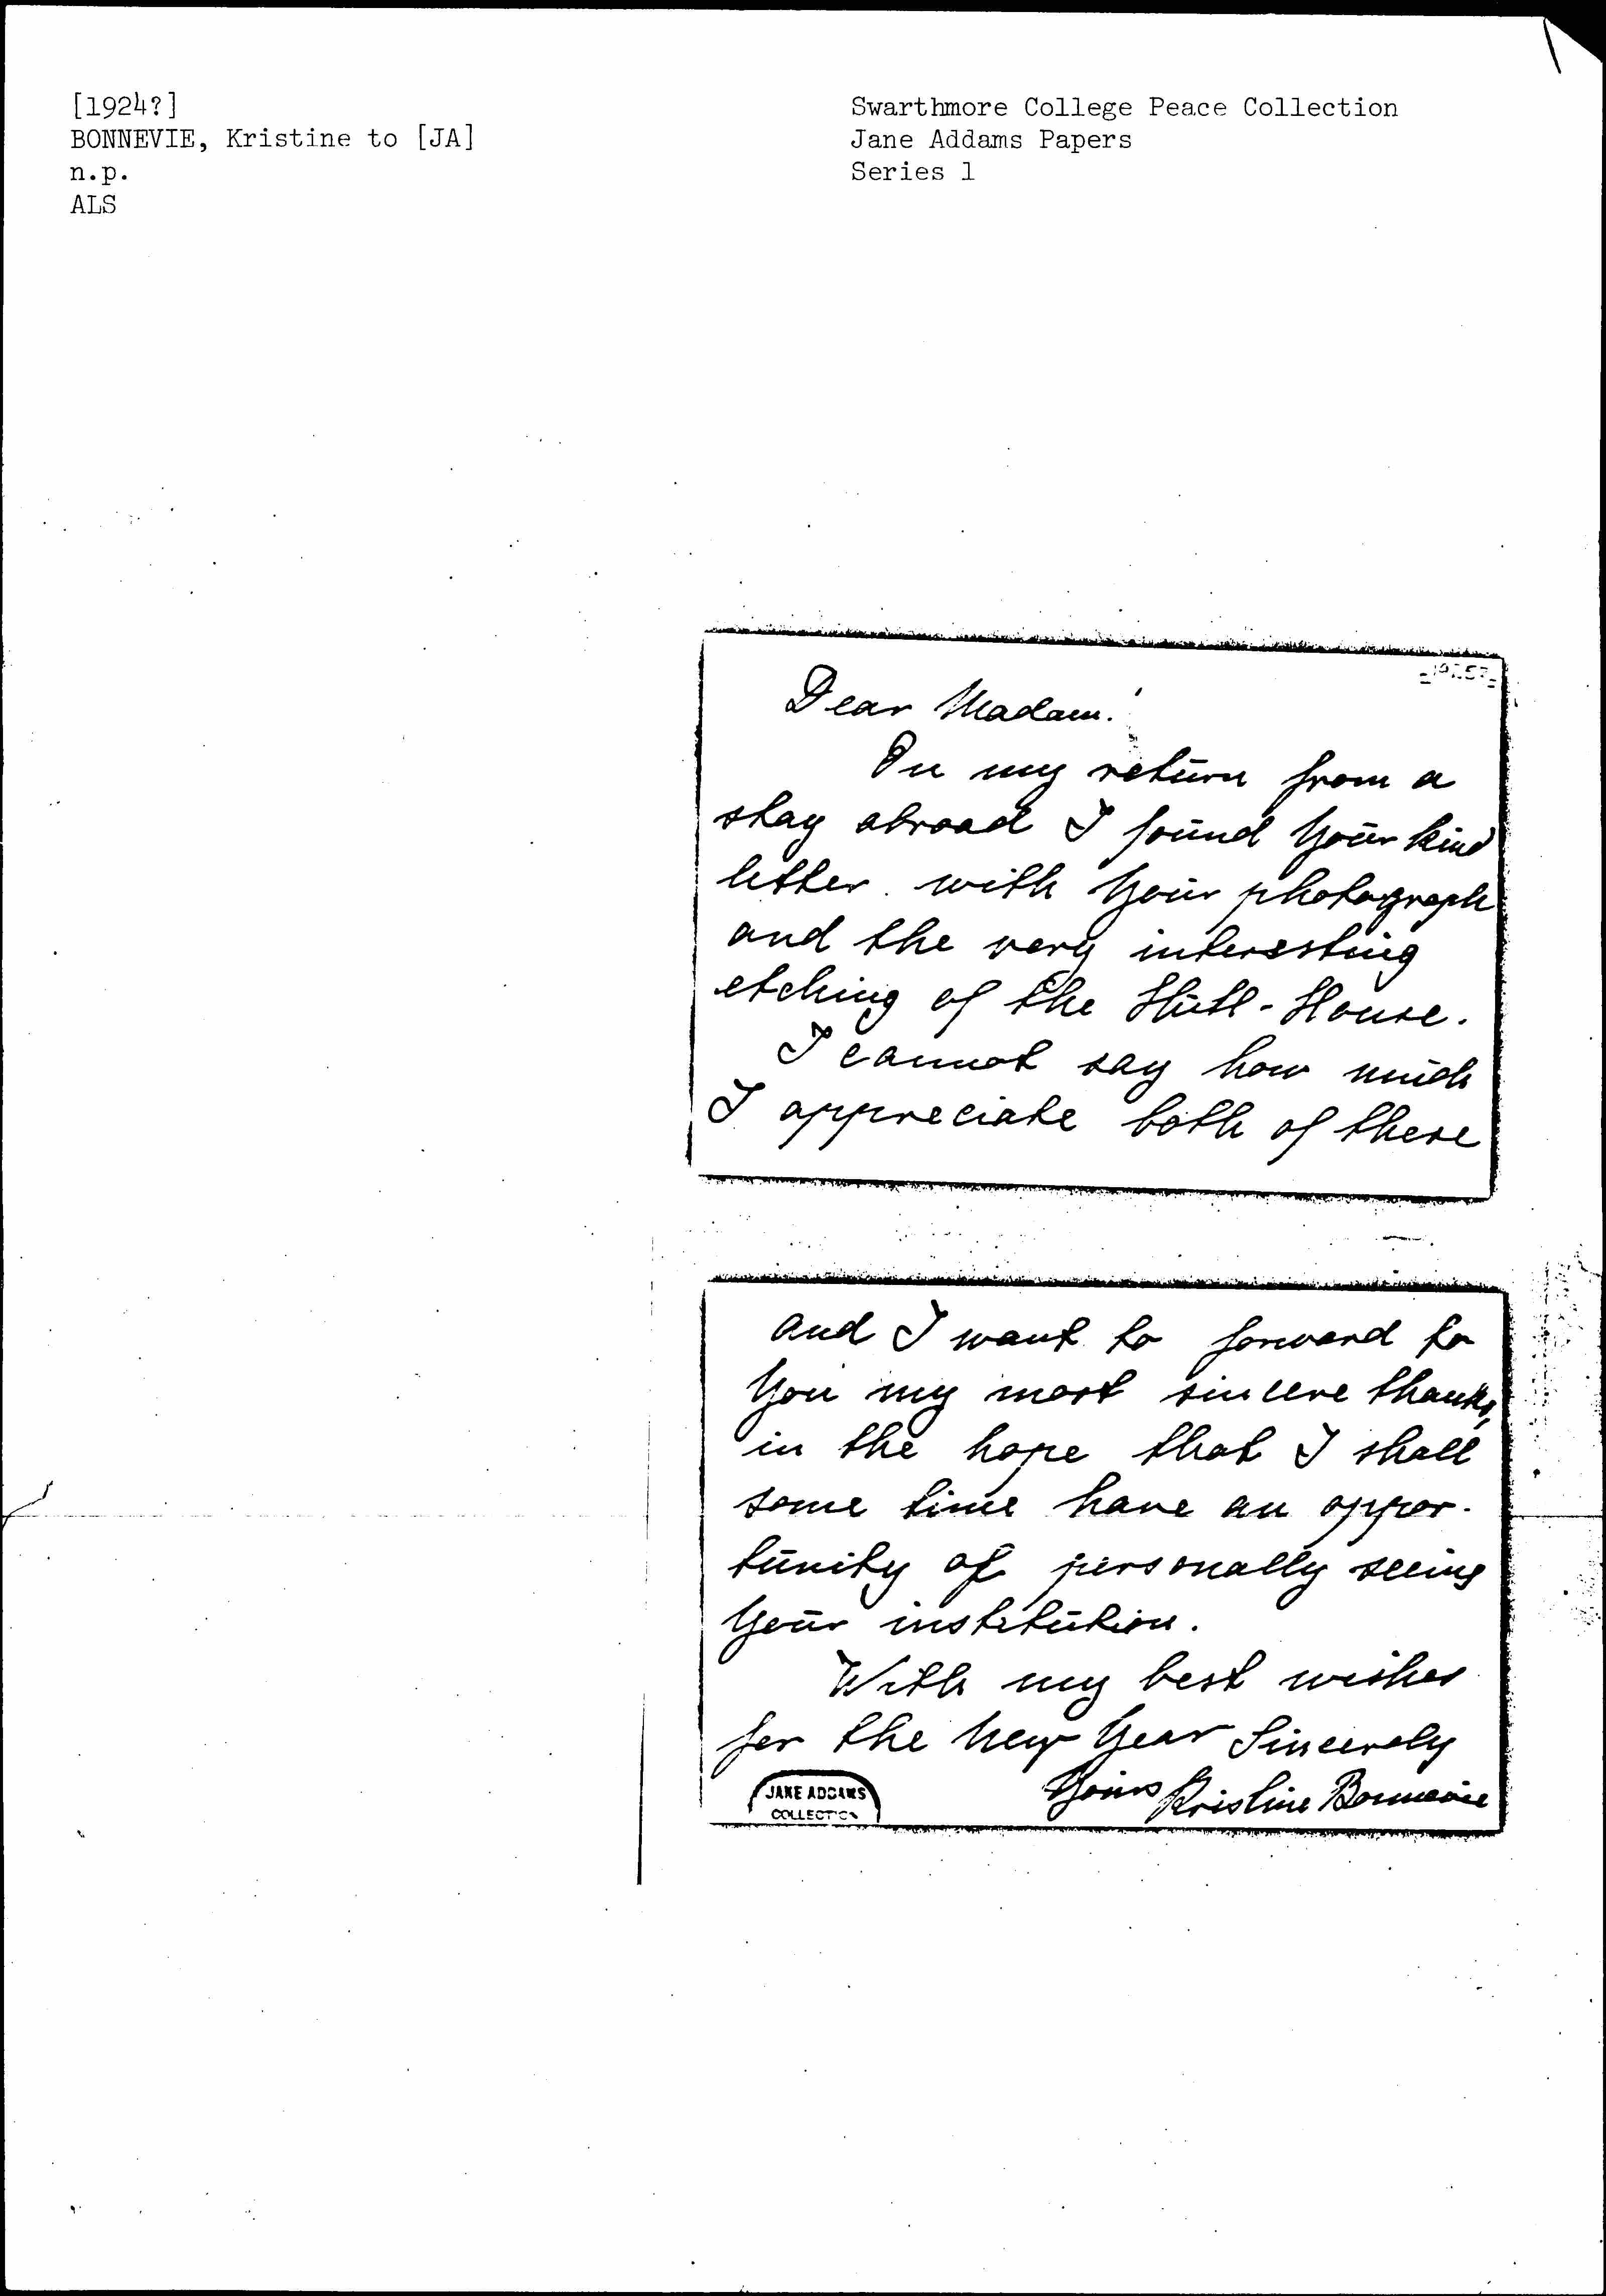 [1924?]
BONNEVIE, Kristine to [JA]
n.p.
ALS
Swarthmore College Peace Collection
Jane Addams Papers
Series 1
Dear Madam!
On my return from a
stay abroad I found Your kind
letter with Your photograph
and the very interesting
etching of the Hull-House.
I cannot say how much
I appreciate both of these
and I want to forward to
You my most sincere thanks,
in the hope that I shall
some time have an oppor-
tunity of personally seeing
Your institution.
With my best wishes
for the New Year Sincerely
Yours Kristine Bonnevie
JANE ADDAMS
COLLECTION